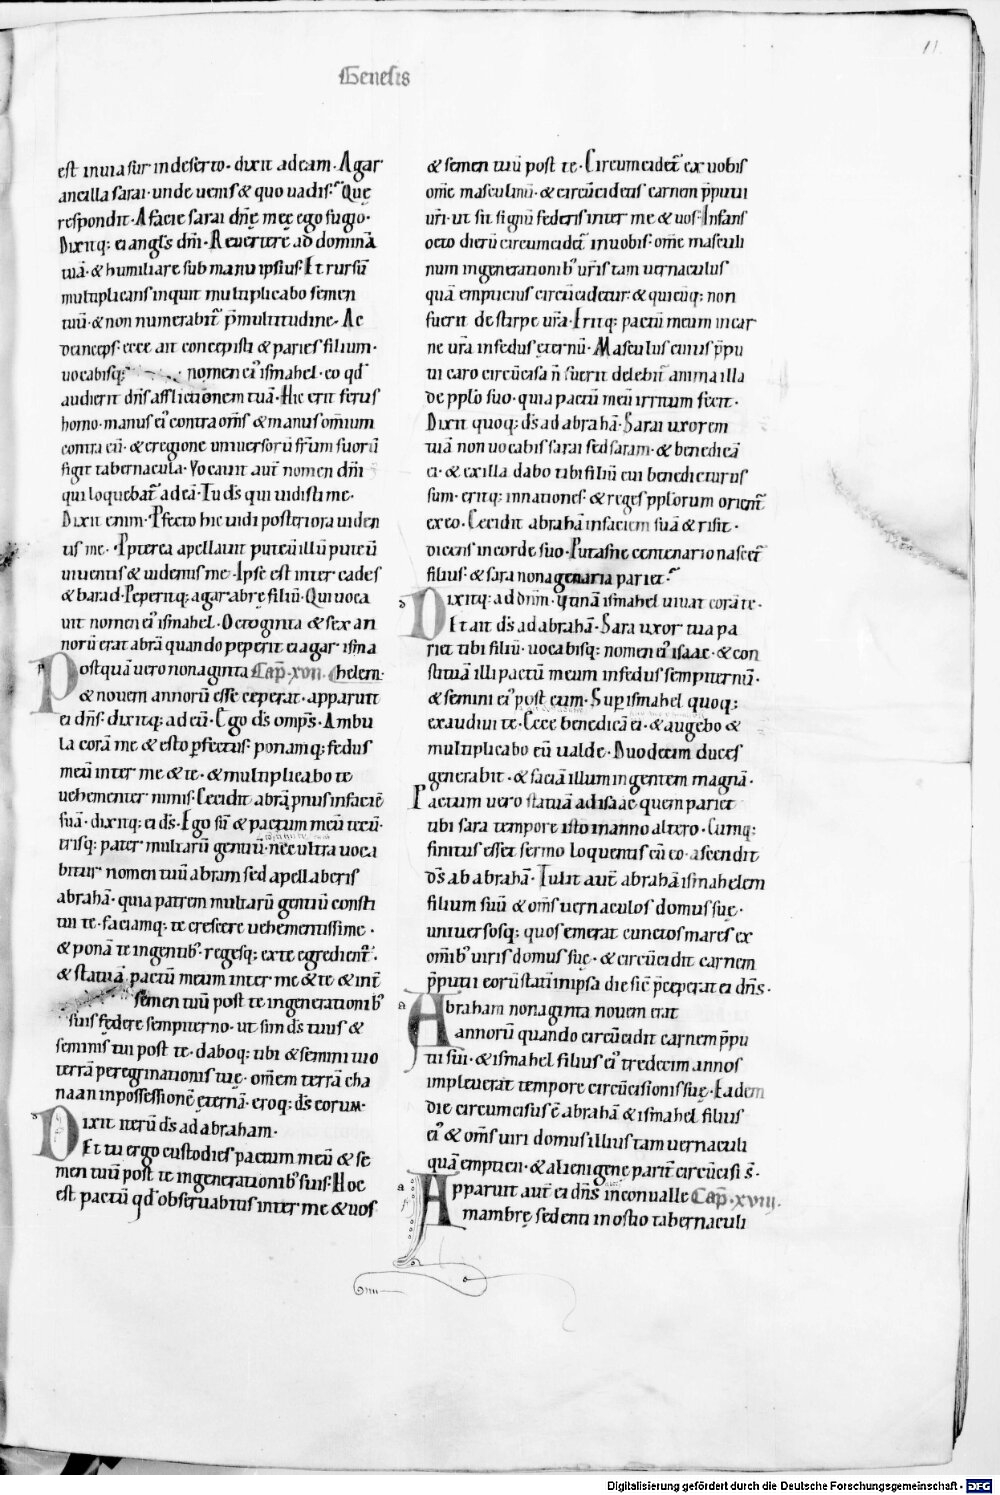 11
Genesis
est in uia sur in deserto. dixit ad eam. Agar
ancilla sarai. unde uenis & quo uadis? Que
respondit. A facie sarai dn̄e meę ego fugio.
Dixitq; ei angl̄s dn̄i. Reuertere ad dominā
tuā. & humiliare sub manu ipsius. Et rursū
multiplicans inquit multiplicabo semen
tuū. & non numerabit̄ p̄ multitudine. Ac
deinceps. ecce ait concepisti & paries filium.
uocabisq; nomen ei' ismahel. eo qđ
audierit dn̄s afflictionem tuā. Hic erit ferus
homo. manus ei' contra om̄s & manus om̄ium
contra eū. & e regione uniuersorū fr̄um suorū
figit tabernacula. Vocauit aut̄ nomen dn̄i
qui loquebat̄ ad eā. Tu ds̄ qui uidisti me.
Dixit enim. Pfecto hic uidi posteriora uiden
tis me. Ppterea apellauit puteū illū puteū
uiuentis & uidentis me. Ipse est inter cades
& barad. Peperitq; agar abrę filiū. Qui uoca
uit nomen ei' ismahel. Octoginta & sex an
norū erat abrā quando peperit ei agar isma
Postquā uero nonaginta Cap̄. xvii. helem.
& nouem annorū esse ceperat. apparuit
ei dn̄s. dixitq; ad eū. Ego ds̄ omp̄s. Ambu
la corā me & esto pfectus. ponamq; fedus
meū inter me & te. & multiplicabo te
uehementer nimis. Cecidit abrā pnus in faciē
suā. dixitq; ei ds̄. Ego sū & pactum meū tecū.
erisq; pater multarū gentiū. nec ultra uoca
bitur nomen tuū abram sed apellaberis
abrahā. quia patrem multarū gentiū consti
tui te. faciamq; te crescere uehementissime.
& ponā te in gentib'. regesq; ex te egredient̄.
& statuā pactū meum inter me & te & int̄
semen tuū post te in generationib'
suis federe sempiterno. ut sim ds̄ tuus &
seminis tui post te. daboq; tibi & semini tuo
terrā peregrinationis tuę. omēm terrā cha
naan in possessionē ęternā. eroq; ds̄ eorum.
Dixit iterū ds̄ ad abraham.
Et tu ergo custodies pactum meū & se
men tuū post te in generationib' suis. Hoc
est pactū qđ obseruabitis inter me & uos
& semen tuū post te. Circumcidet̄ ex uobis
om̄e masculinū. & circūcidetis carnem p̄putii
ur̄i. ut sit signū federis inter me & uos. Infans
octo dierū circumcidet̄ in uobis. om̄e masculi
num in generationib' ur̄is tam uernaculus
quā empticius circūcidetur. & quicūq; non
fuerit de stirpe ur̄a. Eritq; pactū meum in car
ne ur̄a in fedus ęternū. Masculus cuius p̄pu
tii caro circūcisa n̄ fuerit delebit̄ anima illa
de pplo suo. quia pactū meū irritum fecit.
Dixit quoq; ds̄ ad abrahā. Sarai uxorem
tuā non uocabis sarai sed saram. & benedicā
ei. & ex illa dabo tibi filiū cui benedicturus
sum. eritq; in nationes. & reges pplorum orient̄
ex eo. Cecidit abrahā in faciem suā & risit.
dicens in corde suo. Putasne centenario nascet̄
filius. & sara nonagenaria pariet?
Dixitq; ad dn̄m. Vtinā ismahel uiuat corā te.
Et ait ds̄ ad abrahā. Sara uxor tua pa
riet tibi filiū. uocabisq; nomen ei' isaac. & con
stituā illi pactū meum in fedus sempiternū.
& semini ei' post eum. Sup ismahel quoq;
exaudiui te. Ecce benedicā ei. & augebo &
multiplicabo eū ualde. Duodecim duces
generabit. & faciā illum in gentem magnā.
Pactum uero statuā ad isaac quem pariet
tibi sara tempore isto in anno altero. Cumq;
finitus esset sermo loquentis cū eo. ascendit
ds̄ ab abrahā. Tulit aut̄ abrahā ismahelem
filium suū & om̄s uernaculos domus suę.
uniuersosq; quos emerat cunctos mares ex
om̄ib' uiris domus suę. & circūcidit carnem
p̄putii eorū statī in ipsa die sic̄ p̄ceperat ei dn̄s.
Abraham nonaginta nouem erat
annorū quando circūcidit carnem p̄pu
tii sui. & ismahel filius ei' tredecim annos
impleuerat tempore circūcisionis suę. Eadem
die circumcisus ē abrahā & ismahel filius
ei' & om̄s uiri domus illius tam uernaculi
quā empticii. & alienigenę parit̄ circūcisi s̄.
Apparuit aut̄ ei dn̄s in conualle Cap̄. xviii.
mambrę sedenti in ostio tabernaculi
Digitalisierung gefördert durch die Deutsche Forschungsgemeinschaft - DFG